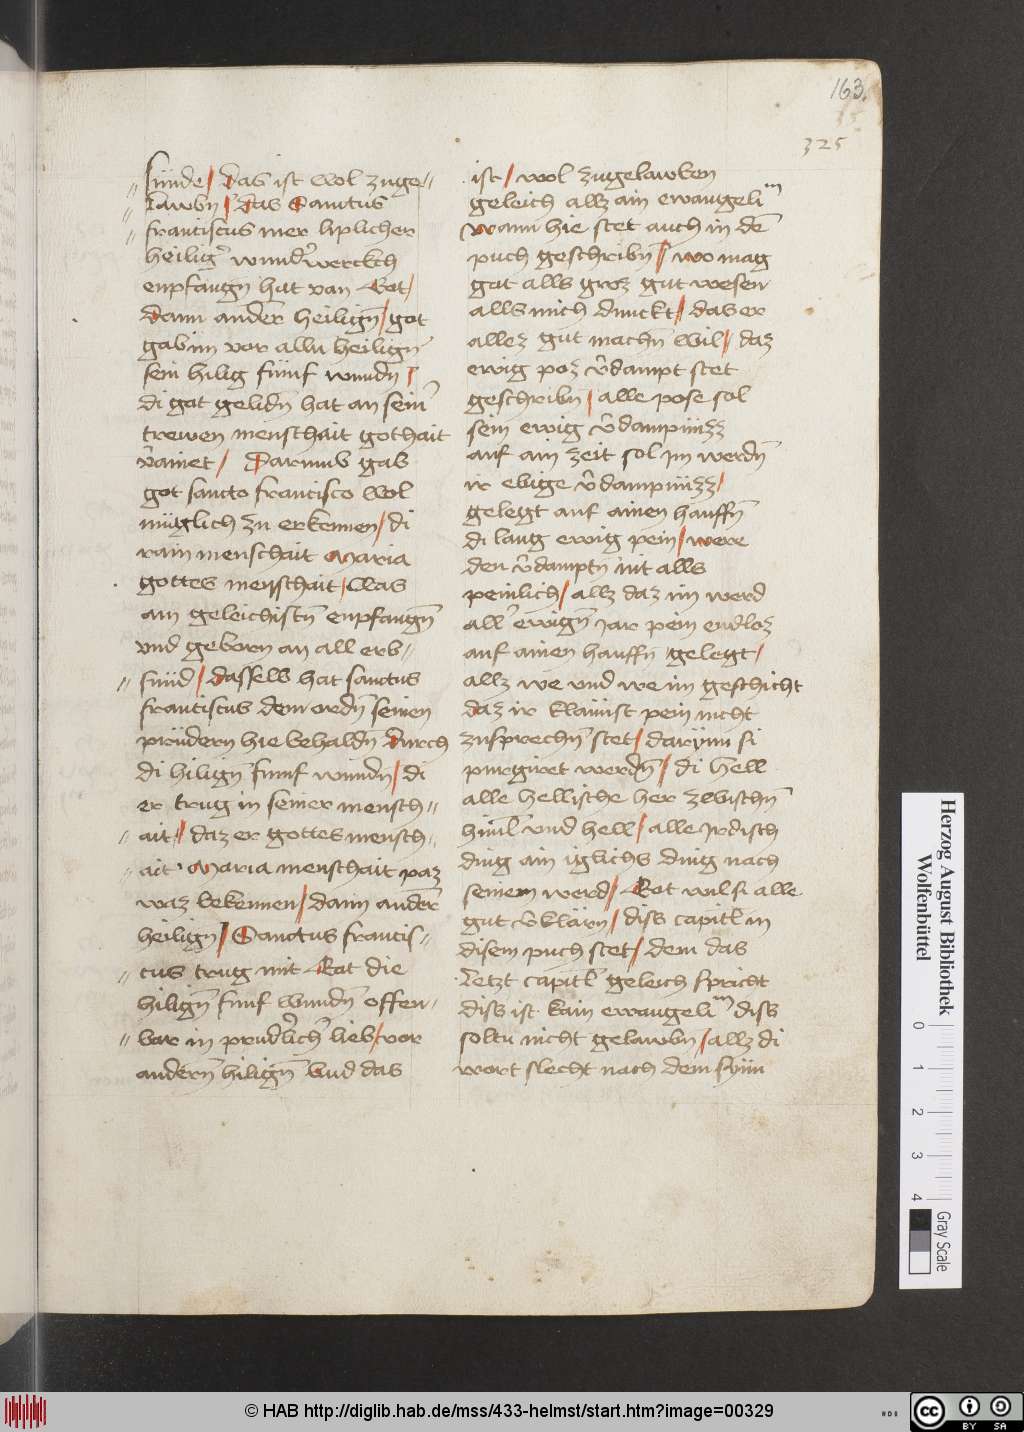 163.
325
sünde / das ist wol zuge=
lawbn / Das Sanctus
franciscus mer liplicher
heiligr wundrwerckch
enpfangn hat van Got /
dann andēr heilign / got
gab im vor alln heilign
sein hilig fünf wundn /
di got gelidn hat an seinr
trewen menschait gothait
vainet / Darumb gab
got sancto francisco wol
müglich zu erkennen / di
rain menschait Maria
gottes menschait / Was
am geleichistn enpfangn
vnd geborn an all erb=
sünd / dasselb hat sanctus
franciscus dem ordn seinen
prüdern hie behaldn durch
di hilign funf wundn / di
er trug in seiner mensch=
ait / daz er gottes mensch=
ait Maria menschait paz
waz bekennen / dann andēr
heilign / Sanctus francis=
cus trug mit Got die
hilign funf wundn offen=
bar in prudrlichr lieb / vor
andern hilign Vnd das
ist / wol zugelawben
geleich allz ain ewangelim
wann hie stet auch in dē
puch geschribn / wo mag
got alls groz gut wesen
alls mich dunckt / das er
allez gut machn wil / daz
ewig poz vdampt stet
geschribn / alle pose sol
sein ewig vdampnüzz
auf ain zeit sol im werdn
ir ebige vdampnüzz /
gelegt auf ainen hauffn
di lang ewig pein / were
den vdamptn nit alls
peinlich / allz daz im werd
allr ewign Jar pein endloz
auf ainen hauffn gelegt /
allz we vnd we im geschicht
daz ir klainist pein nicht
zusprechn stet / darynn si
purgiret werdn / di hell
alle hellische her zwischn
himl vnd hell / alle Irdisch
ding ain iglichs ding nach
seinem werd / Got wil si alle
gut vklärn / diss capitl in
disem puch stet / dem das
letzt capitl geleich spricht
diss ist kain ewangelim diss
soltu nicht gelawbn / allz di
wort slecht nach dem synn
Herzog August Bibliothek
Wolfenbüttel
0 1 2 3 4
Gray Scale
© HAB http://diglib.hab.de/mss/433-helmst/start.htm?image=00329
HAB
cc BY SA